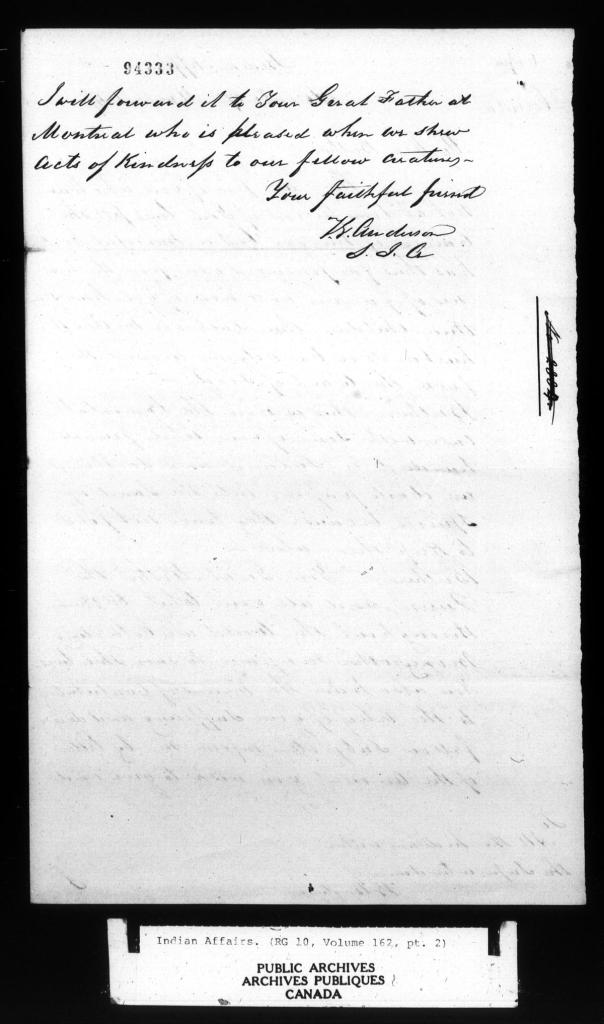 94333
I will forward it to Your Gerat Father at
Montreal who is pleased when we shew
Acts of Kindness to our fellow creatures—
Your faithful friend
Anderson
S. I. A
Indian Affairs. (RG 10, Volume 162, pt. 2)
PUBLIC ARCHIVES
ARCHIVES PUBLIQUES
CANADA